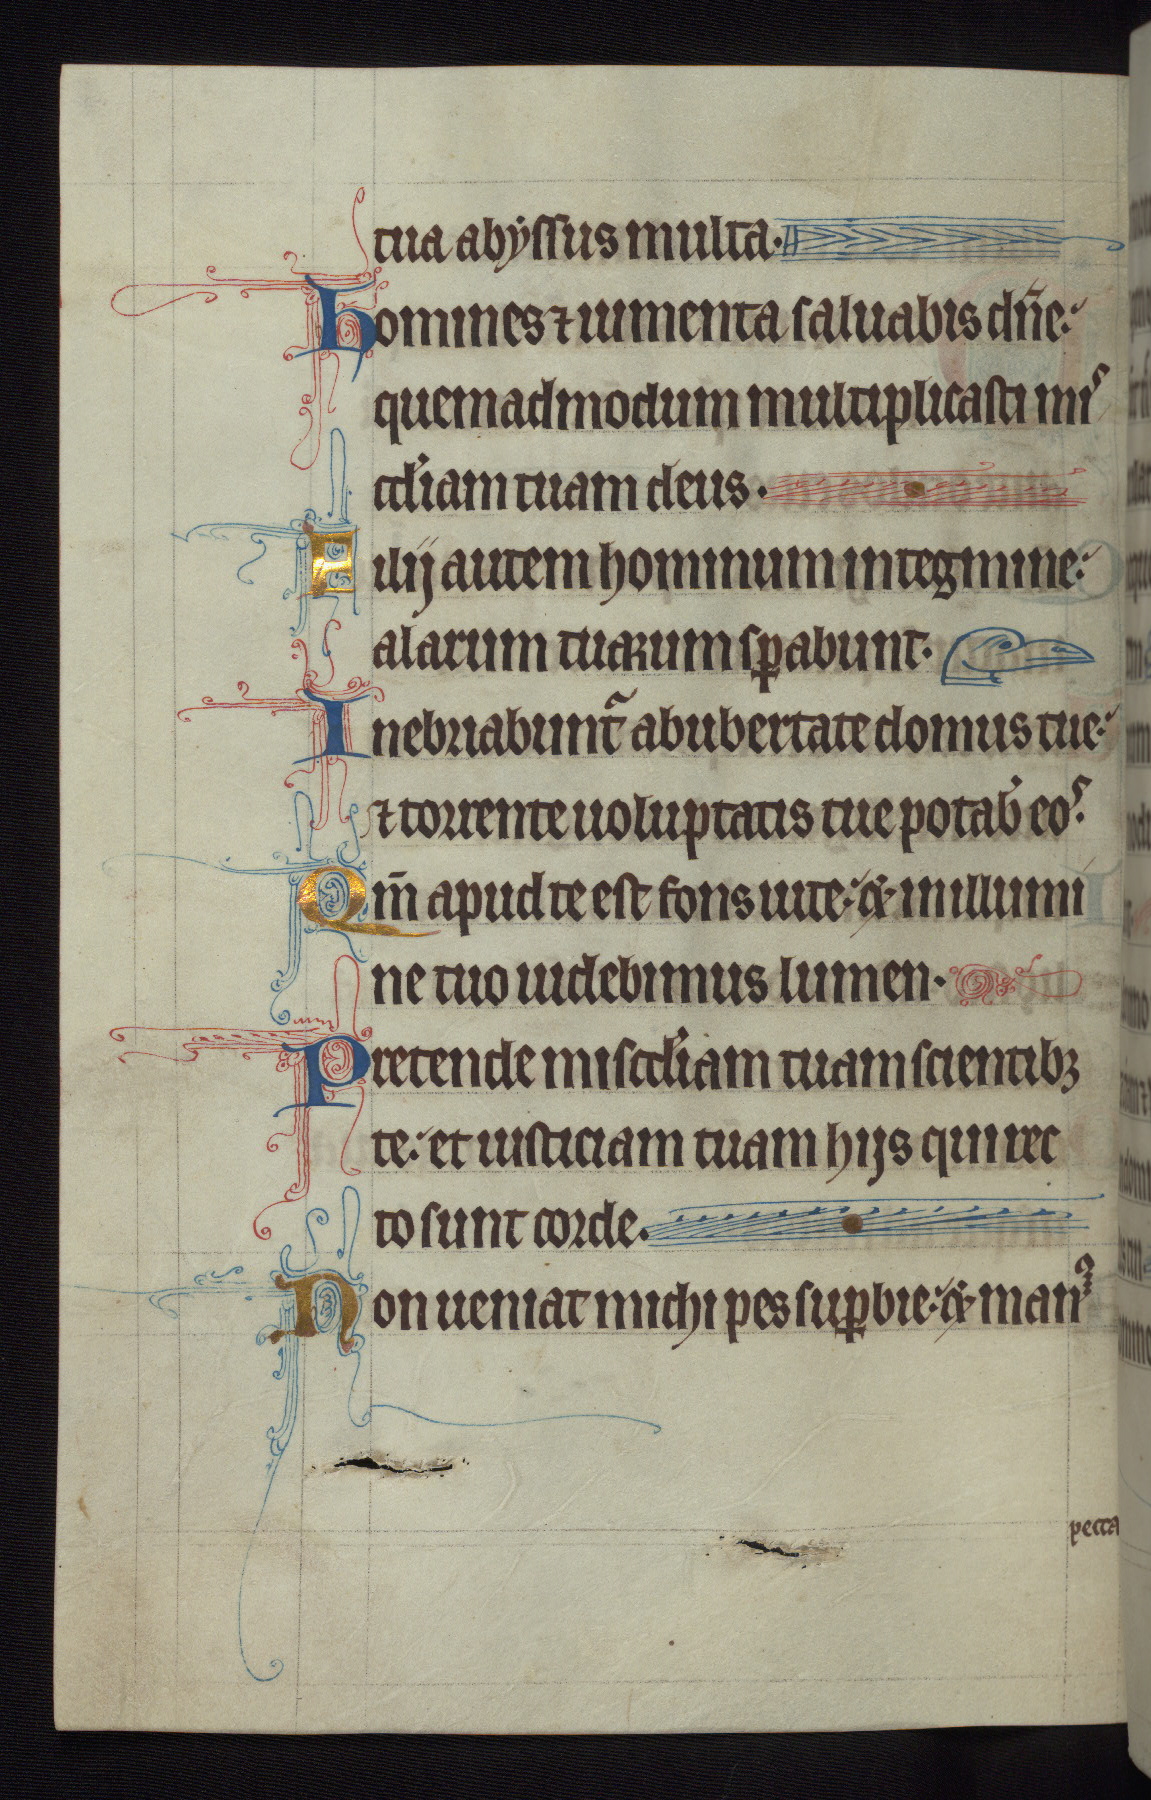 tua abyssus multa.
Homines ⁊ iumenta saluabis dn̄e:
quemadmodum multiplicasti miẜ
cd̓iam tuam deus.
Filij autem hominum in tegmine:
alarum tuarum sꝑabunt.
Inebriabunt᷑ ab ubertate domus tue:
⁊ torrente uoluptatis tue potab̓ eoſ.
Qm̄ apud te est fons uite: & in illumi
ne tuo uidebimus lumen.
Pretende miscd̓iam tuam scientibꝫ
te: et iusticiam tuam hijs qui rec
to sunt corde.
Non ueniat michi pes suꝑbie: & manꝰ
pecca